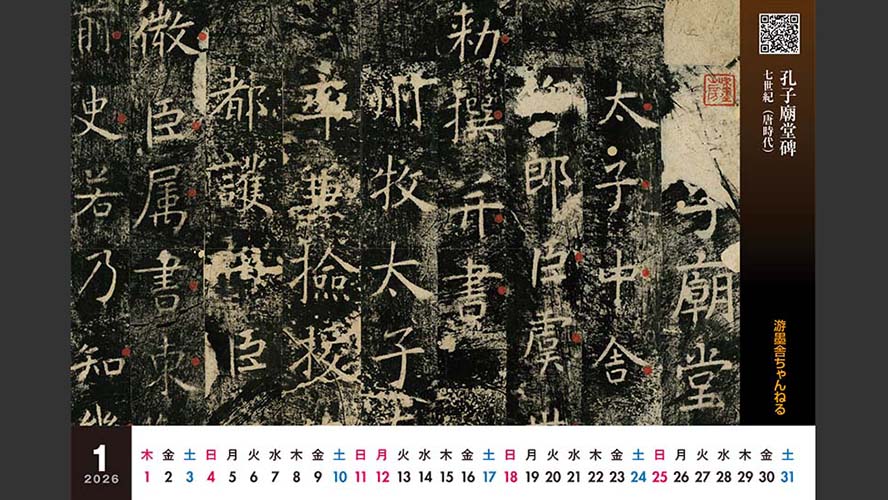 孔子廟堂碑
七世紀（唐時代）
游墨舎ちゃんねる
子廟堂
太子中舍
郎臣虞世
勅撰并書
州牧太子
率兼撿挍
都護 臣
微臣属書東
前史若乃知幾
1
2026
木 金 土 日 月 火 水 木 金 土 日 月 火 水 木 金 土 日 月 火 水 木 金 土 日 月 火 水 木 金 土
1 2 3 4 5 6 7 8 9 10 11 12 13 14 15 16 17 18 19 20 21 22 23 24 25 26 27 28 29 30 31